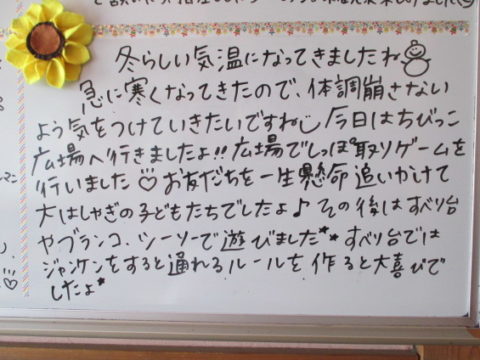 冬らしい気温になってきましたね
急に寒くなってきたので、体調崩さない
よう気をつけていきたいですね 今日はちびっこ
広場へ行きましたよ!!広場でしっぽ取りゲームを
行いました♡お友だちを一生懸命追いかけて
大はしゃぎの子どもたちでしたよ♪その後はすべり台
やブランコ、シーソーで遊びました*すべり台では
ジャンケンをすると通れるルールを作ると大喜びで
したよ*